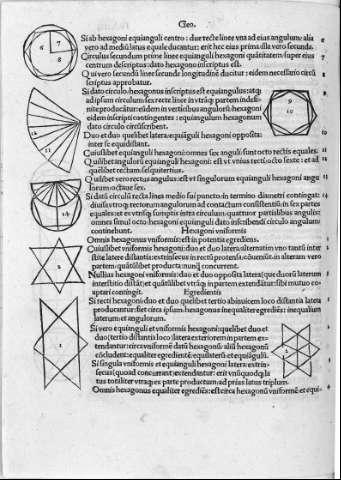 Geo.
Si ab hexagoni equianguli centro: due recte linee una ad eius angulum: alia
vero ad medium latus eque ducantur: erit hec eius prima illa vero secunda.
Circulus secundum prime linee equianguli hexagoni quātitatem super eius
centrum descriptus: dato hexagono inscriptus est.
Qui vero secundū linee secunde longitudinē ducitur: eidem necessario circū
scriptus approbatur.
Si dato circulo hexagonus inscriptus est equiangulus: atqȝ
ad ipsum circulum sex recte linee in utrāqȝ partem indefi-
nite producātur: eidem in verticibus angulorū hexagoni
eidem inscripti contingentes: equiangulum hexagonum
dato circulo circūscribent.
Duo et duo quelibet latera: equiāguli hexagoni opposita:
inter se equidistant.
Cuiuslibet equianguli hexagoni: omnes sex anguli sunt octo rectis equales.
Quilibet angulorū equianguli hexagoni: est ut unius recti: octo sexte: et ad
quēlibet rectum sesquitertius.
Quilibet vero rectus angulus: est ut singulorum equianguli hexagoni angu
lorum octaue sex.
Si datū circulū recta linea medio sui puncto: in termino diametri contingat:
diuisis utroqȝ rectorum angulorum ad contactum consistentiū in sex partes
equales: et ex utrisqȝ sumptis intra circulum quattuor partialibus angulis:
omnes simul octo hexagoni equianguli dato inscribendi circulo angulum
continebunt. Hexagoni uniformis
Omnis hexagonus uniformis: est in potentia egrediens.
Cuiuslibet uniformis hexagoni: duo et duo latera: alternatim uno tantū inter
stite latere distantia: extrinsecus in rectū protensa: cōueniūt. in alteram vero
partem: quātūlibet producta: nunqȝ concurrent.
Nullius hexagoni uniformis: duo et duo opposita latera: que duorū laterum
interstitio distāt: et quātūlibet utrāqȝ in partem extendātur: sibi mutuo co-
aptari contingit. Egredientis
Si recti hexagoni: duo et duo quelibet tertio abinuicem loco distantia latera
producantur: fiet circa ipsum: hexagonus inequaliter egrediēs: inequalium
laterum: et angulorum.
Si vero equianguli et uniformis hexagoni: quelibet duo et
duo (tertio distantia loco) latera exteriorem in partem ex-
tendantur: circa uniformē datū hexagonū: aliū hexagonū
cōcludent: equaliter egrediētē: equilaterū et equiāgulū.
Si singula uniformis et equianguli hexagoni latera: extrin-
secus (quoad concurrant) extendantur: erit unūquodqȝ la-
tus totiliter utraqȝ ex parte productum: ad prius latus triplum.
Omnis hexagonus equaliter egrediēs: est circa hexagonū uniformē et equi-